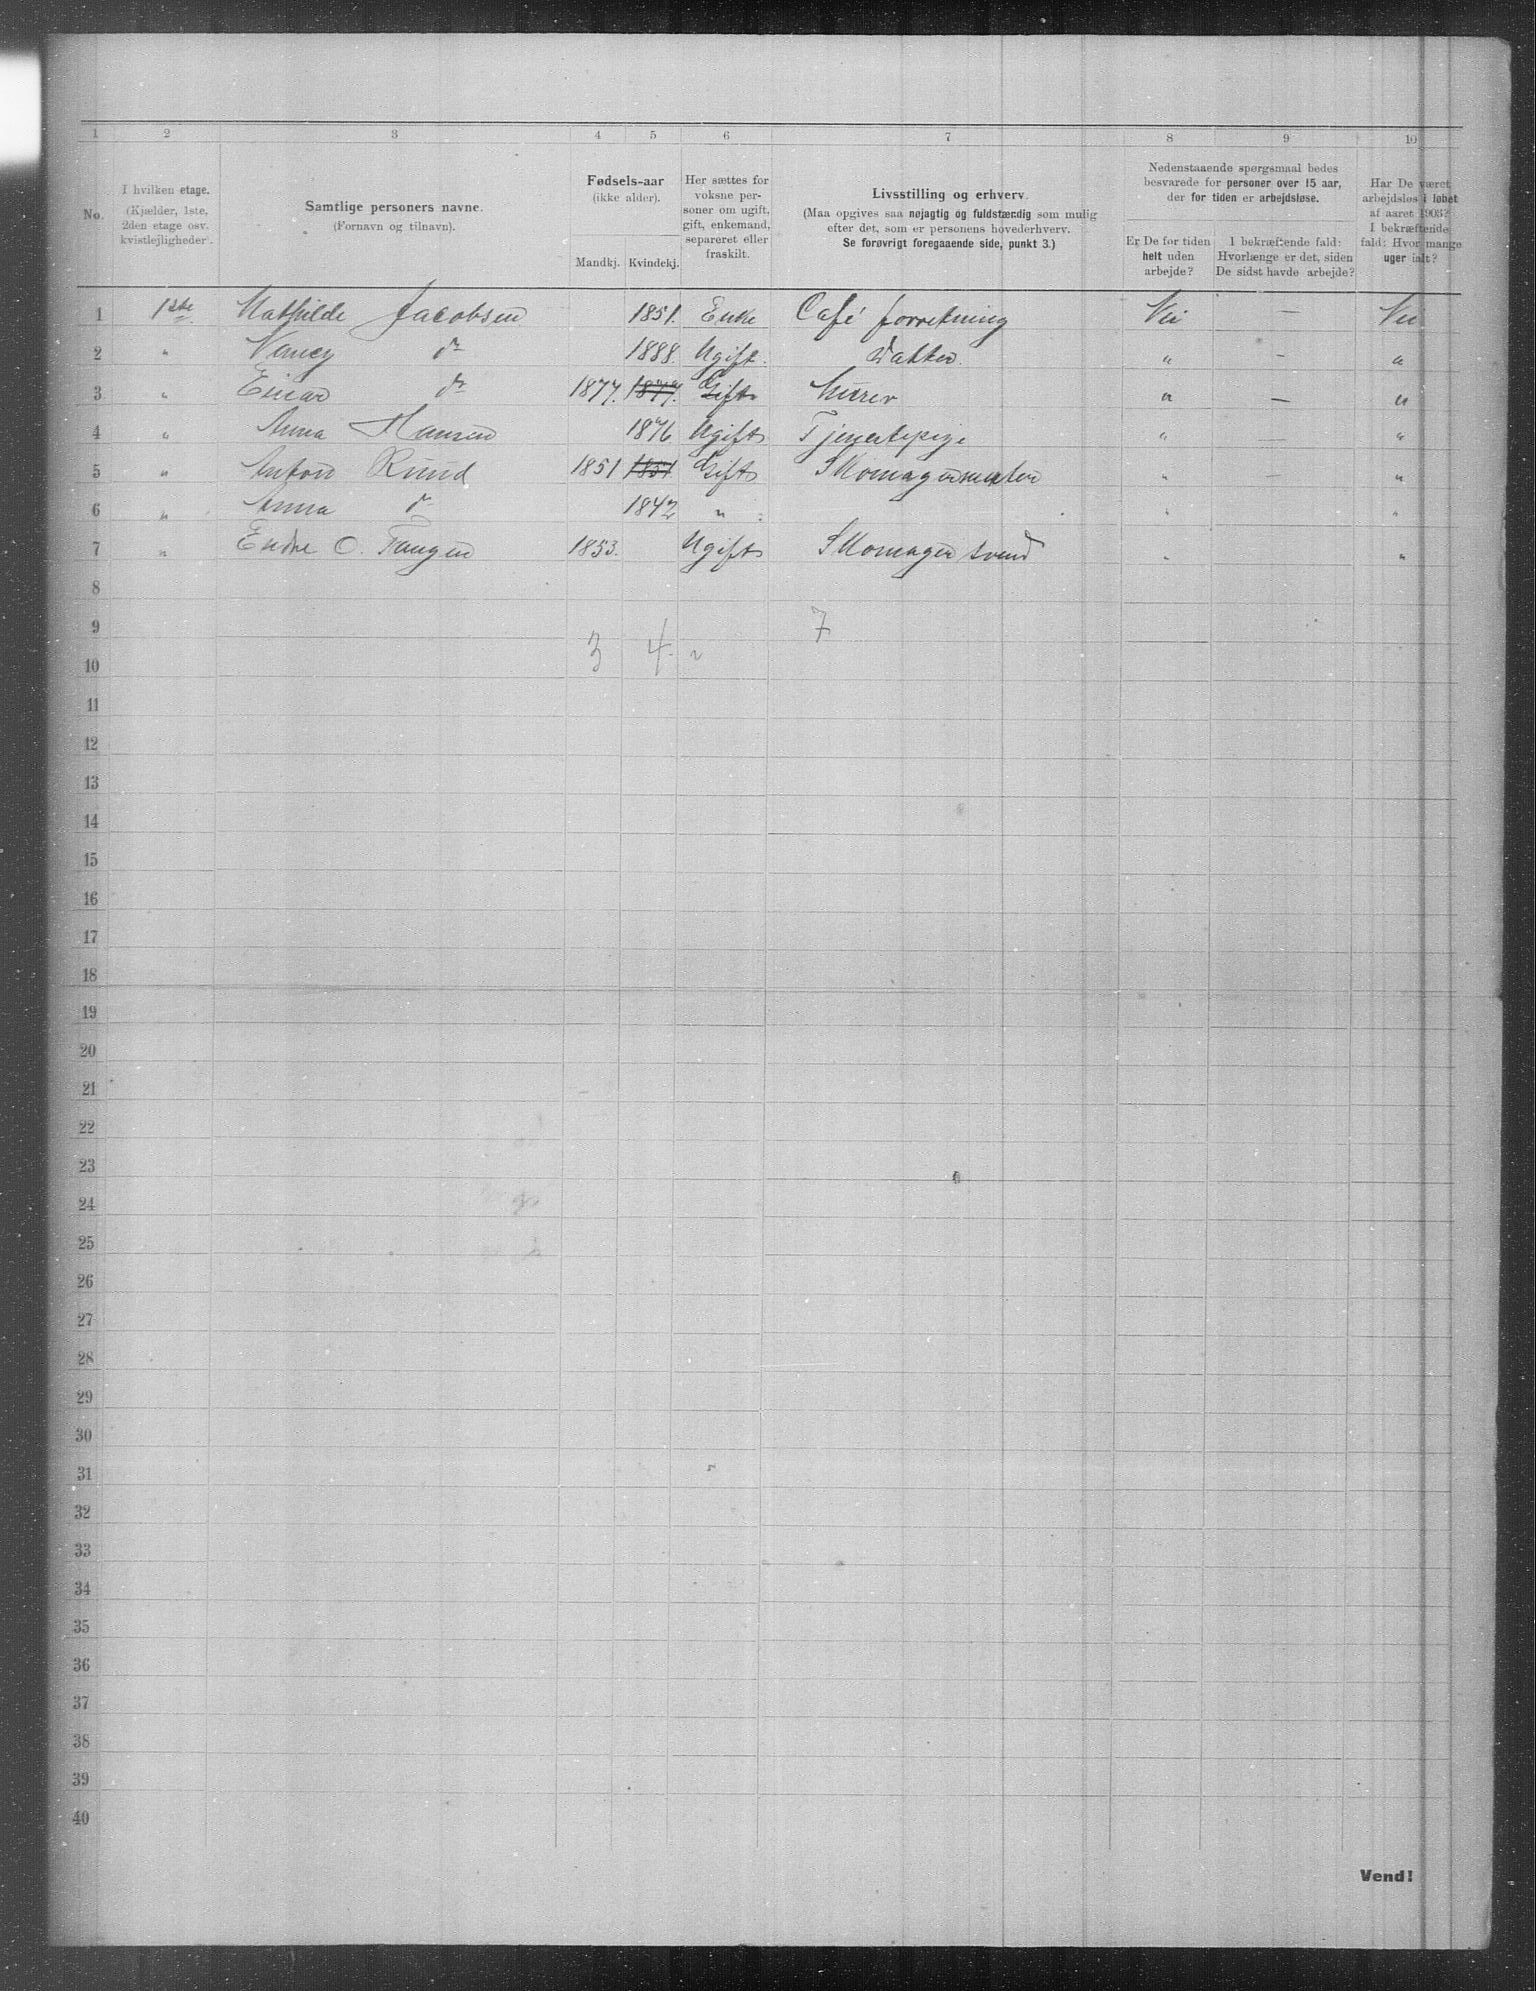 1 2 3 4 5 6 7 8 9 10
No. I hvilken etage. (Kjælder, 1ste, 2den etage osv. kvistlejligheder). Samtlige personers navne. (Fornavn og tilnavn). Fødsels-aar (ikke alder). Mandkj. Kvindekj. Her sættes for voksne personer om ugift, gift, enkemand, separeret eller fraskilt. Livsstilling og erhverv. (Maa opgives saa nøjagtig og fuldstændig som mulig efter det, som er personens hovederhverv. Se forøvrigt foregaaende side, punkt 3.) Nedenstaaende spørgsmaal bedes besvarede for personer over 15 aar, der for tiden er arbejdsløse. Er De for tiden helt uden arbejde? I bekræftende fald: Hvorlænge er det, siden De sidst havde arbejde? Har De været arbejdsløs i løbet af aaret 1903? I bekræftende fald: Hvor mange uger ialt?
1 1ste Mathilde Jacobsen 1851. Enke Café forretning Nei — Nei
2 " Nancy do 1888. Ugift. Datter. " - "
3 " Einar do 1877. 1877. Gift Murer " — "
4 " Anna Hansen 1876 Ugift Tjenestepige " — "
5 " Anton Rund 1851 1851 Gift Skomagermester " - "
6 " Anna do 1842 " " "
7 " Endre O. Fangen 1853. Ugift Skomager svend " "
8
9 7
10 3 4
11
12
13
14
15
16
17
18
19
20
21
22
23
24
25
26
27
28
29
30
31
32
33
34
35
36
37
38
39
40
Vend!